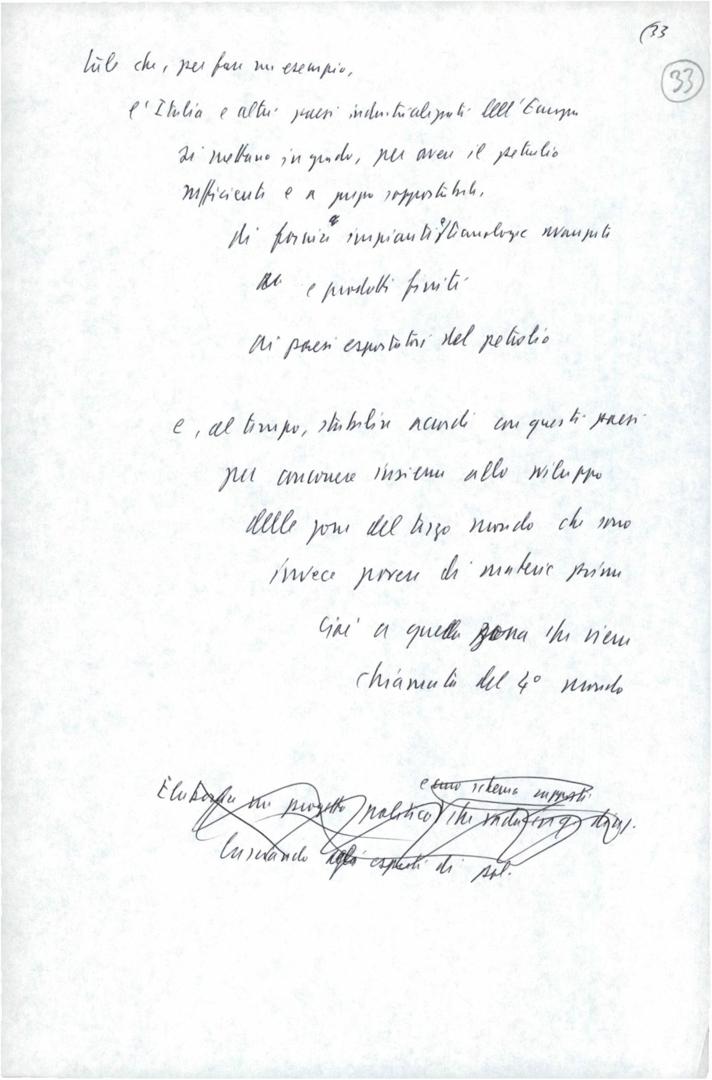 33
33
tale che, per fare un esempio,
l'Italia e altri paesi industrializzati dell'Europa
si mettano in grado, per avere il petrolio
sufficiente e a prezzo sopportabile,
di fornire impianti e tecnologie avanzate
e prodotti finiti
ai paesi esportatori del petrolio
e, al tempo, stabilire accordi con questi paesi
per concorrere insieme allo sviluppo
delle zone del terzo mondo che sono
invece povere di materie prime
cioè a quella zona che viene
chiamata del 4° mondo
e uno schema
Elaborare un progetto politico che
lasciando agli esperti di